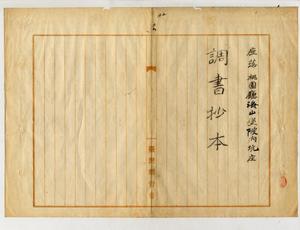 座落桃園廳海山堡陂內坑庄
調書抄本
臺灣總督府